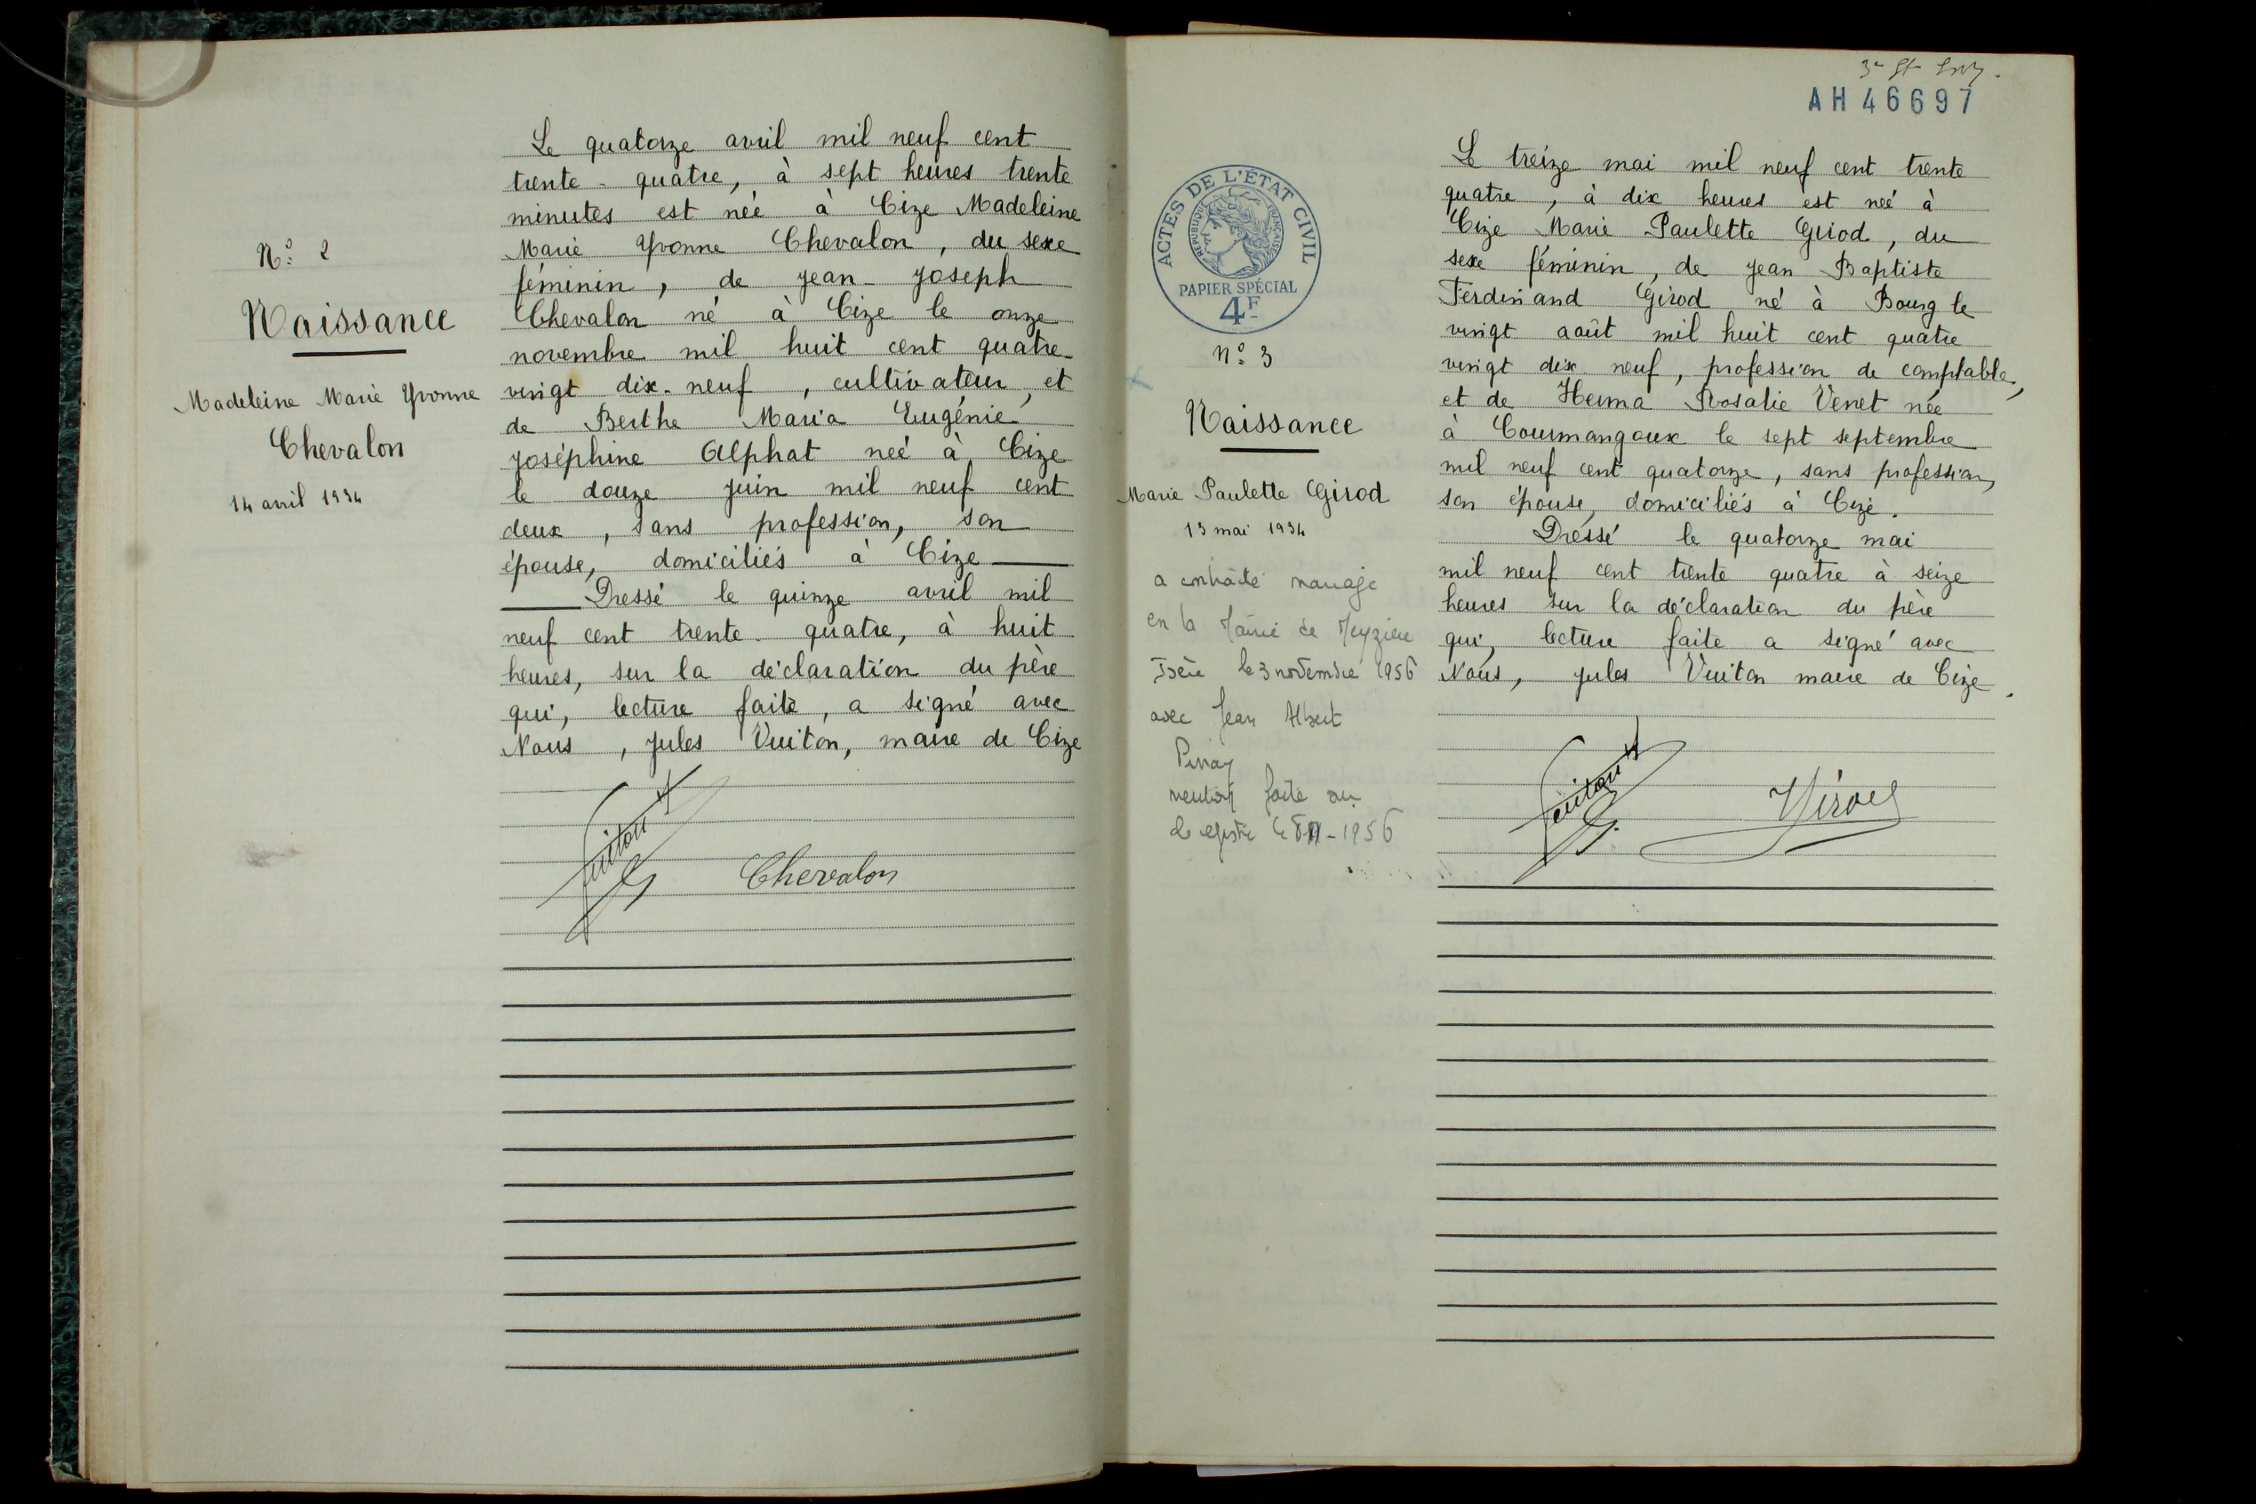 N° 2
Naissance
Madeleine Marie Yvonne
Chevalon
14 avril 1934
Le quatorze avril mil neuf cent
trente-quatre, à sept heures trente
minutes est née à Cize Madeleine
Marie Yvonne Chevalon, du sexe
féminin, de Jean-Joseph
Chevalon né à Cize le onze
novembre mil huit cent quatre-
vingt dix-neuf, cultivateur, et
de Berthe Maria Eugénie
Joséphine Alphat née à Cize
le douze juin mil neuf cent
deux, sans profession, son
épouse, domiciliés à Cize
Dressé le quinze avril mil
neuf cent trente-quatre, à huit
heures, sur la déclaration du père
qui, lecture faite, a signé avec
Nous, Jules Vuiton, maire de Cize
Vuiton J
Chevalon
AH 46697
ACTES DE L'ÉTAT CIVIL
RÉPUBLIQUE FRANÇAISE
PAPIER SPÉCIAL
4F
N° 3
Naissance
Marie Paulette Girod
13 mai 1934
a contracté mariage
en la Mairie de Meyzieu
Isère le 3 novembre 1956
avec Jean Albert
Pinay
mention faite au
registre le 8-11-1956
Le treize mai mil neuf cent trente
quatre, à dix heures est née à
Cize Marie Paulette Girod, du
sexe féminin, de Jean Baptiste
Ferdinand Girod né à Bourg le
vingt août mil huit cent quatre
vingt dix neuf, profession de comptable,
et de Herma Rosalie Venet née
à Courmangoux le sept septembre
mil neuf cent quatorze, sans profession,
son épouse, domiciliés à Cize.
Dressé le quatorze mai
mil neuf cent trente quatre à seize
heures sur la déclaration du père
qui, lecture faite a signé avec
Nous, Jules Vuiton maire de Cize.
Vuiton J
Girod